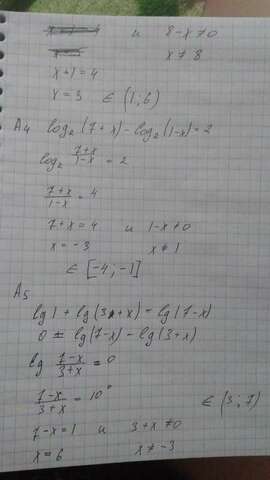 и 8-x≠0
x≠8
x+1=4
x=3 ∈ (1;6)
A4 log₂(7+x)-log₂(1-x)=2
log₂ (7+x)/(1-x) = 2
(7+x)/(1-x) = 4
7+x=4 и 1-x≠0
x=-3 x≠1
∈ [-4;-1]
A5
lg1+lg(3+x)=lg(7-x)
0 = lg(7-x)-lg(3+x)
lg (7-x)/(3+x) = 0
(7-x)/(3+x) = 10⁰ ∈ (3;7)
7-x=1 и 3+x≠0
x=6 x≠-3